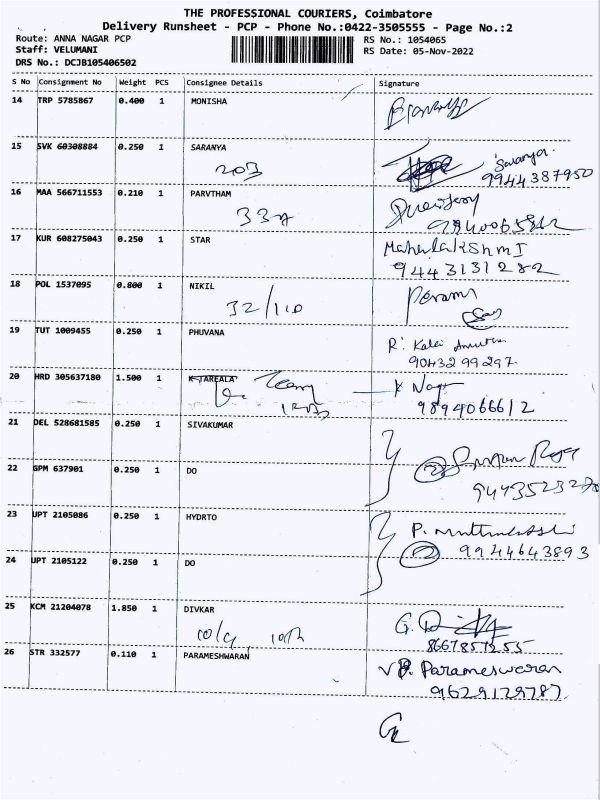 THE PROFESSIONAL COURIERS, Coimbatore
Delivery Runsheet - PCP - Phone No.:0422-3505555 - Page No.:2
Route: ANNA NAGAR PCP RS No.: 1054065
Staff: VELUMANI RS Date: 05-Nov-2022
DRS No.: DCJB105406502
S No Consignment No Weight PCS Consignee Details Signature
14 TRP 5785867 0.400 1 MONISHA
15 SVK 60308884 0.250 1 SARANYA Saranya
203 9944387950
16 MAA 566711553 0.210 1 PARVTHAM
17 KUR 608275043 0.250 1 STAR MahaLakshmI
9443131282
18 POL 1537095 0.800 1 NIKIL
32/110
19 TUT 1009455 0.250 1 PHUVANA R. Kalai
9043299297
20 HRD 305637180 1.500 1 K TAREALA
9894066612
21 DEL 528681585 0.250 1 SIVAKUMAR
22 GPM 637901 0.250 1 DO
23 UPT 2105086 0.250 1 HYDRTO
9944643893
24 UPT 2105122 0.250 1 DO
25 KCM 21204078 1.850 1 DIVKAR
26 STR 332577 0.110 1 PARAMESHWARAN Parameswaran
9629129787